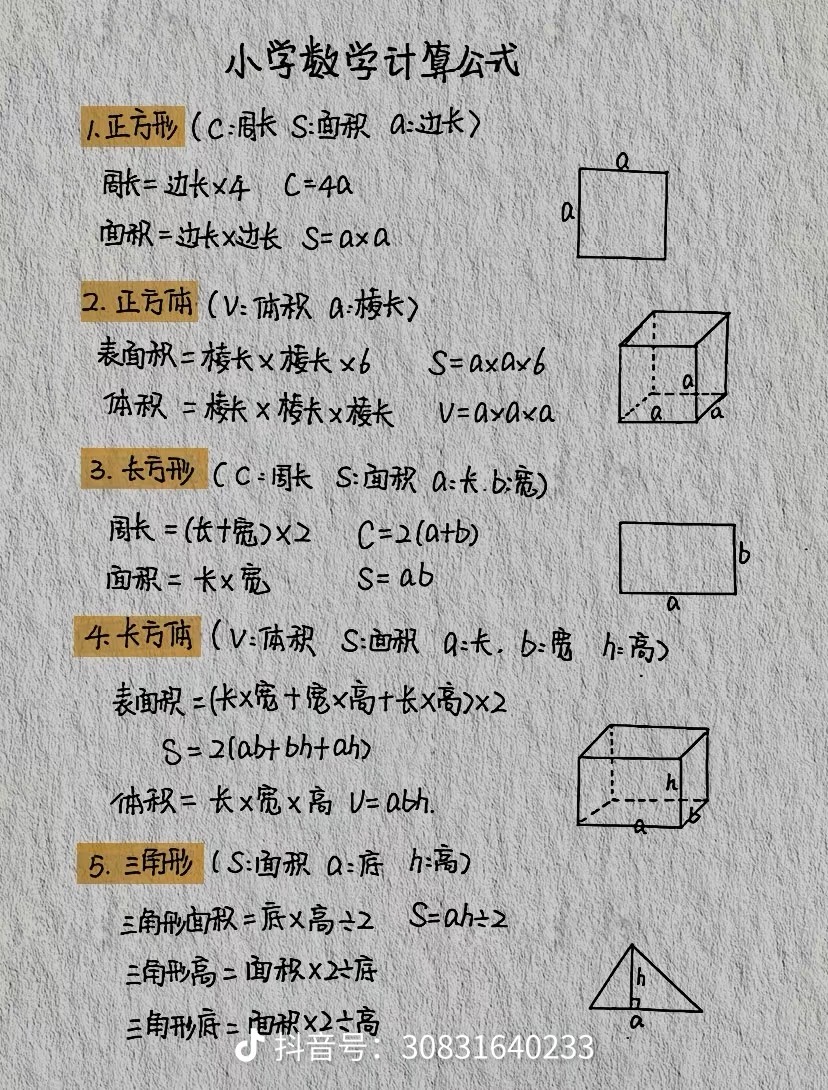 小学数学计算公式
1.正方形（C:周长 S:面积 a:边长）
周长=边长×4 C=4a
面积=边长×边长 S=a×a
a
a
2.正方体（V:体积 a:棱长）
表面积=棱长×棱长×6 S=a×a×6
体积=棱长×棱长×棱长 V=a×a×a
a
a
a
3.长方形（C:周长 S:面积 a:长.b:宽）
周长=(长+宽)×2 C=2(a+b)
面积=长×宽 S=ab
b
a
4.长方体（V:体积 S:面积 a:长. b:宽 h:高）
表面积=(长×宽+宽×高+长×高)×2
S=2(ab+bh+ah)
体积=长×宽×高 V=abh.
h
b
a
5.三角形（S:面积 a:底 h:高）
三角形面积=底×高÷2 S=ah÷2
三角形高=面积×2÷底
三角形底=面积×2÷高
h
a
抖音号：30831640233